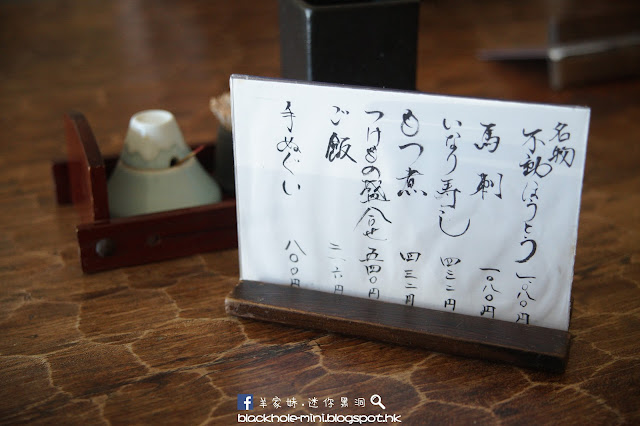 名物
不動ほうとう 一〇八〇円
馬刺 一、〇八〇円
いなり寿し 四三二円
もつ煮 四三二円
つけもの盛合せ 五四〇円
ご飯 二一六円
手ぬぐい 八〇〇円
羊家妹.迷你黑洞
blackhole-mini.blogspot.hk